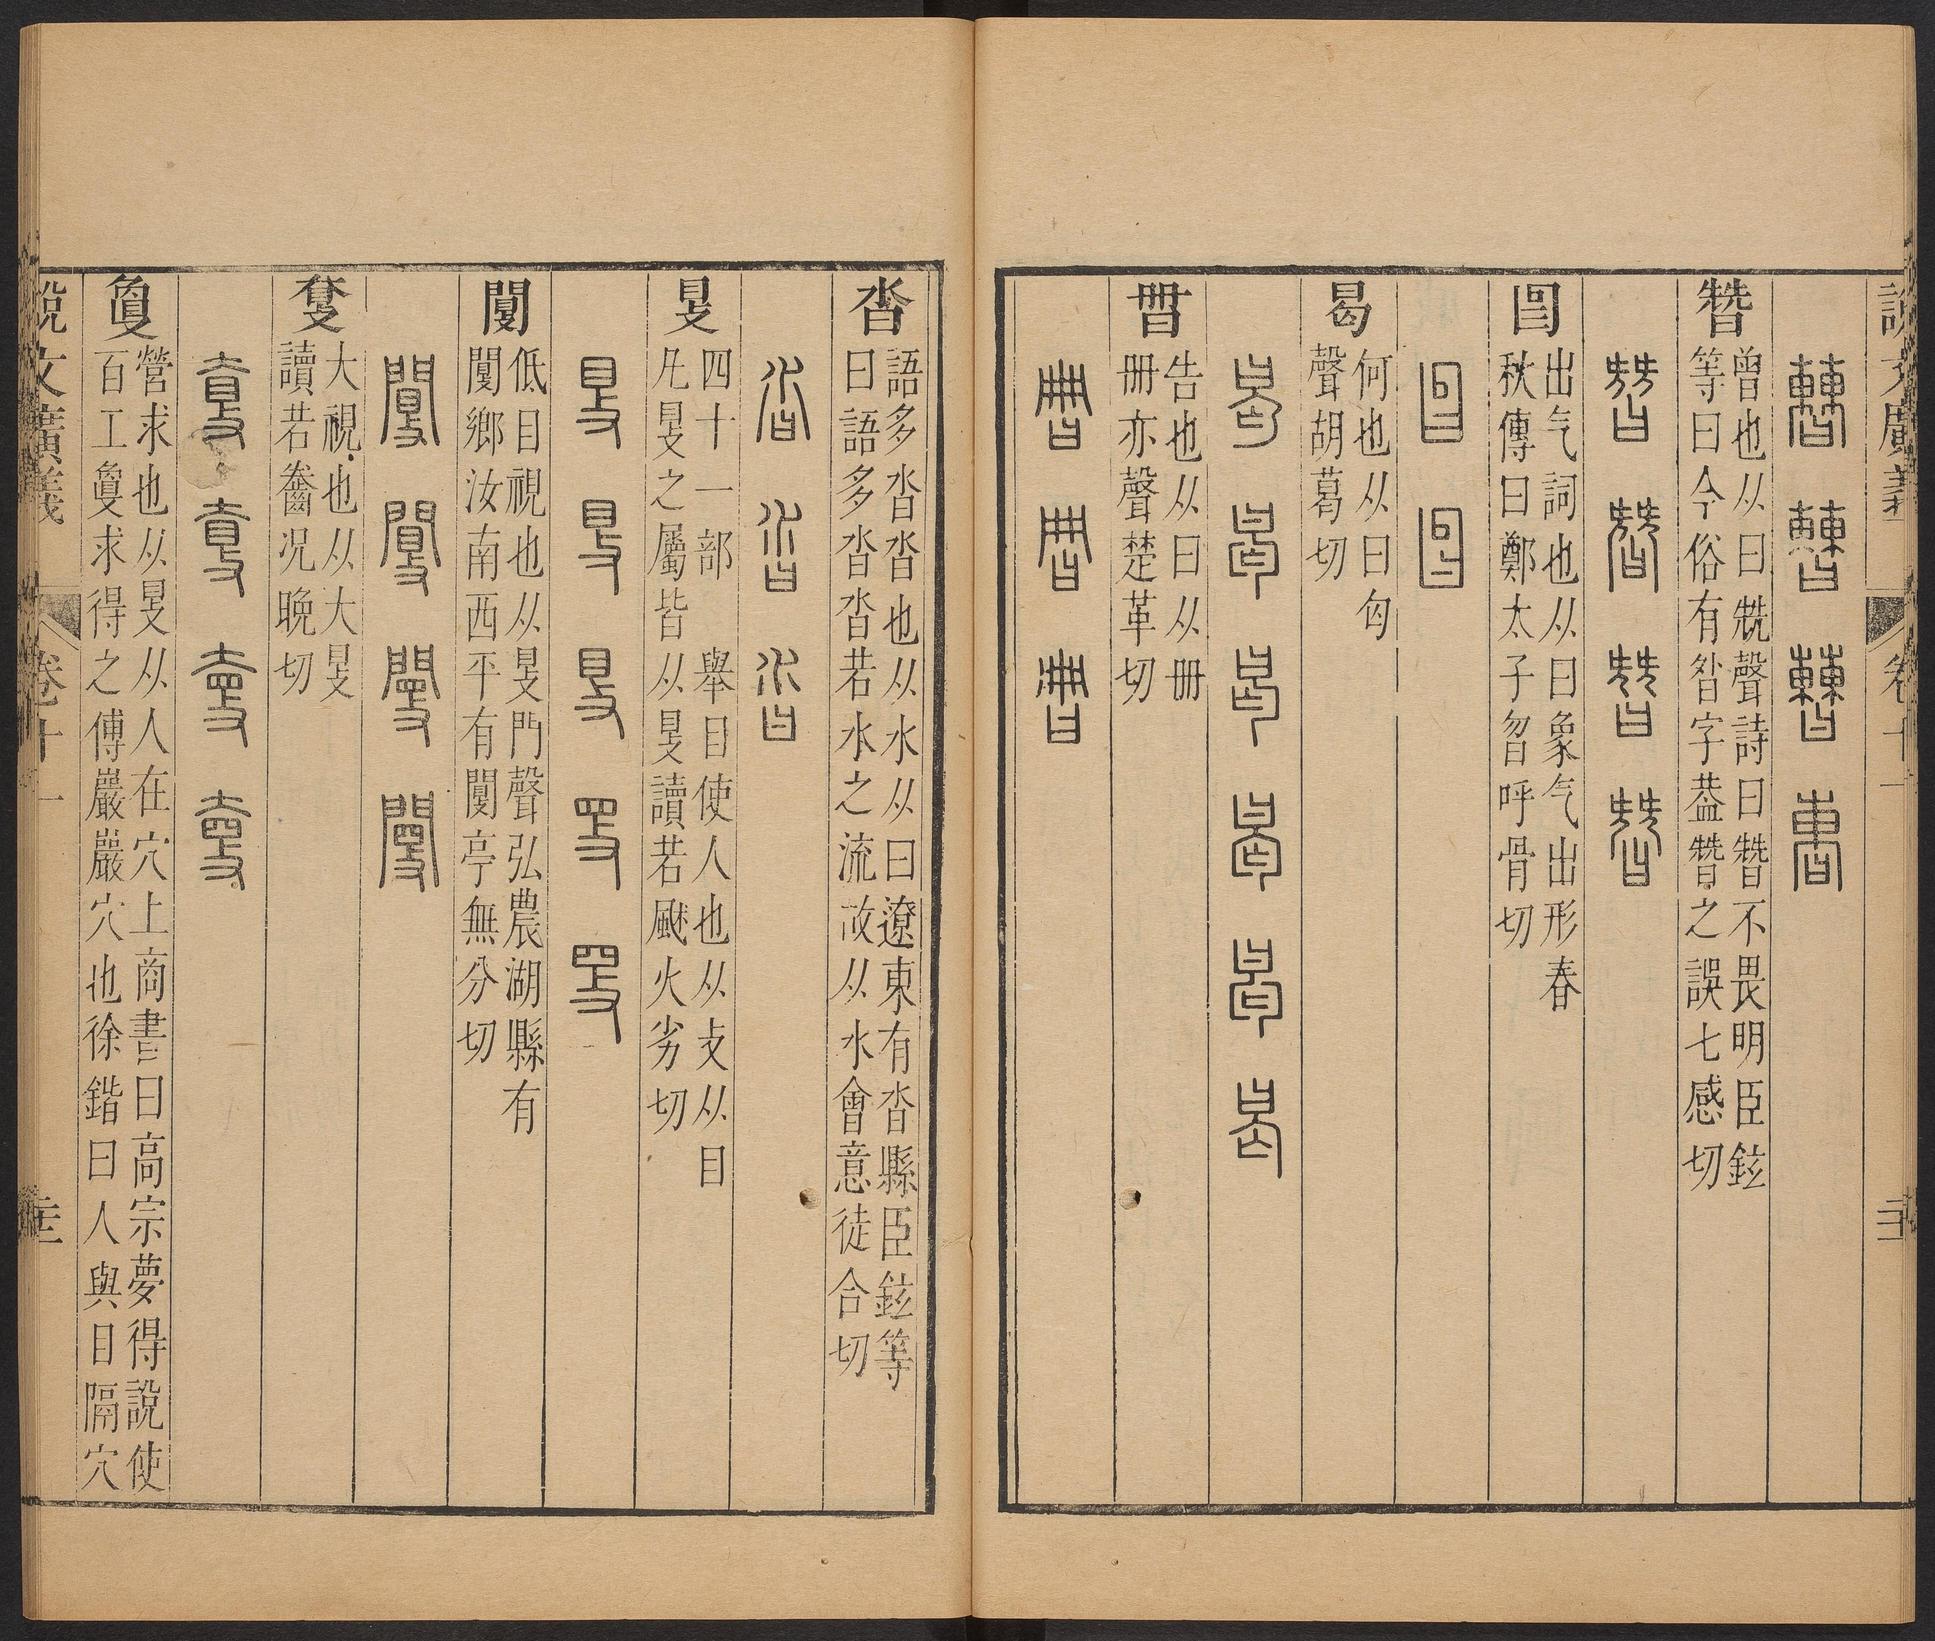 說文廣義
卷十一
朁
曾也从曰兓聲詩曰朁不畏明臣鉉
等曰今俗有昝字葢朁之誤七感切
出气詞也从曰象气出形春
秋傳曰鄭太子曶呼骨切
曷
何也从曰匃
聲胡葛切
告也从曰从冊
冊亦聲楚革切
沓
語多沓沓也从水从曰遼東有沓縣臣鉉等
曰語多沓沓若水之流故从水會意徒合切
𥄎
四十一部 舉目使人也从攴从目
凡𥄎之屬皆从𥄎讀若䬂火劣切
闅
低目視也从𥄎門聲弘農湖縣有
闅鄉汝南西平有闅亭無分切
大視也从大𥄎
讀若齤況晚切
敻
營求也从𥄎从人在穴上商書曰高宗夢得說使
百工敻求得之傅巖巖穴也徐鍇曰人與目隔穴
說文廣義
卷十一